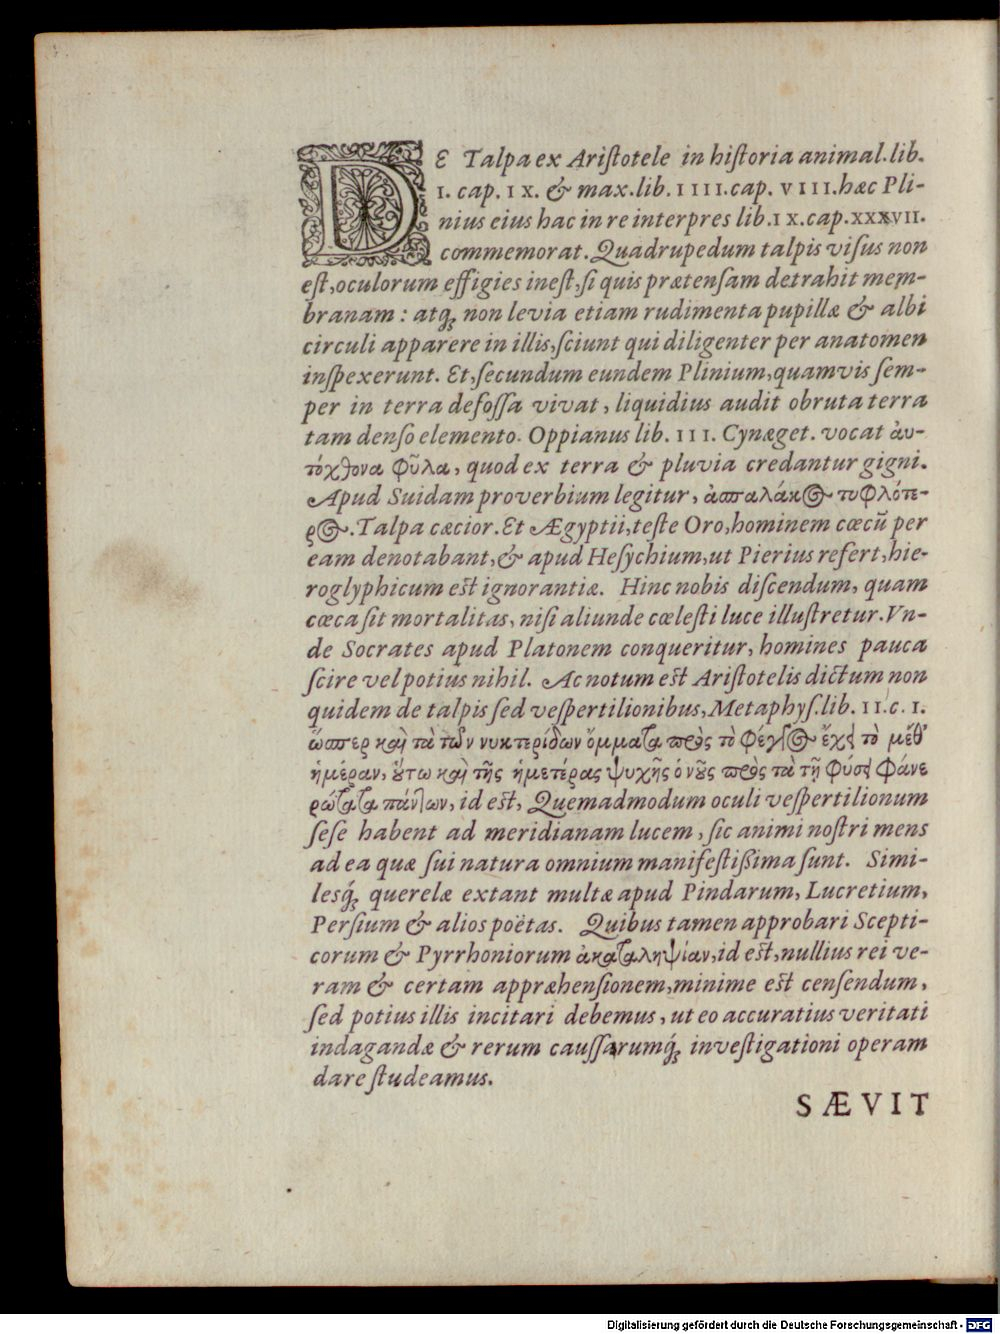 DE Talpa ex Aristotele in historia animal. lib.
I. cap. IX. & max. lib. IIII. cap. VIII. hæc Pli-
nius eius hac in re interpres lib. IX. cap. XXXVII.
commemorat. Quadrupedum talpis visus non
est, oculorum effigies inest, si quis prætensam detrahit mem-
branam: atq́; non levia etiam rudimenta pupillæ & albi
circuli apparere in illis, sciunt qui diligenter per anatomen
inspexerunt. Et, secundum eundem Plinium, quamvis sem-
per in terra defossa vivat, liquidius audit obruta terra
tam denso elemento. Oppianus lib. III. Cynæget. vocat ἀυ-
τόχθονα φῦλα, quod ex terra & pluvia credantur gigni.
Apud Suidam proverbium legitur, ἀσπαλάκος τυφλότε-
ρος. Talpa cæcior. Et Ægyptii, teste Oro, hominem cœcū per
eam denotabant, & apud Hesychium, ut Pierius refert, hie-
roglyphicum est ignorantiæ. Hinc nobis discendum, quam
cœca sit mortalitas, nisi aliunde cœlesti luce illustretur. Vn-
de Socrates apud Platonem conqueritur, homines pauca
scire vel potius nihil. Ac notum est Aristotelis dictum non
quidem de talpis sed vespertilionibus, Metaphys. lib. II. c. I.
ὥσπερ καὶ τὰ τῶν νυκτερίδων ὄμματα πρὸς τὸ φέγγος ἔχει τὸ μέθ᾽
ἡμέραν, ὅυτω καὶ τῆς ἡμετέρας ψυχῆς ὁ νοῦς πρὸς τὰ τῇ φύσει φάνε
ρώτατα πάντων, id est, Quemadmodum oculi vespertilionum
sese habent ad meridianam lucem, sic animi nostri mens
ad ea quæ sui natura omnium manifestißima sunt. Simi-
lesq́; querelæ extant multæ apud Pindarum, Lucretium,
Persium & alios poëtas. Quibus tamen approbari Scepti-
corum & Pyrrhoniorum ἀκαταληψίαν, id est, nullius rei ve-
ram & certam appræhensionem, minime est censendum,
sed potius illis incitari debemus, ut eo accuratius veritati
indagandæ & rerum caussarumq́; investigationi operam
dare studeamus.
SÆVIT
Digitalisierung gefördert durch die Deutsche Forschungsgemeinschaft - DFG